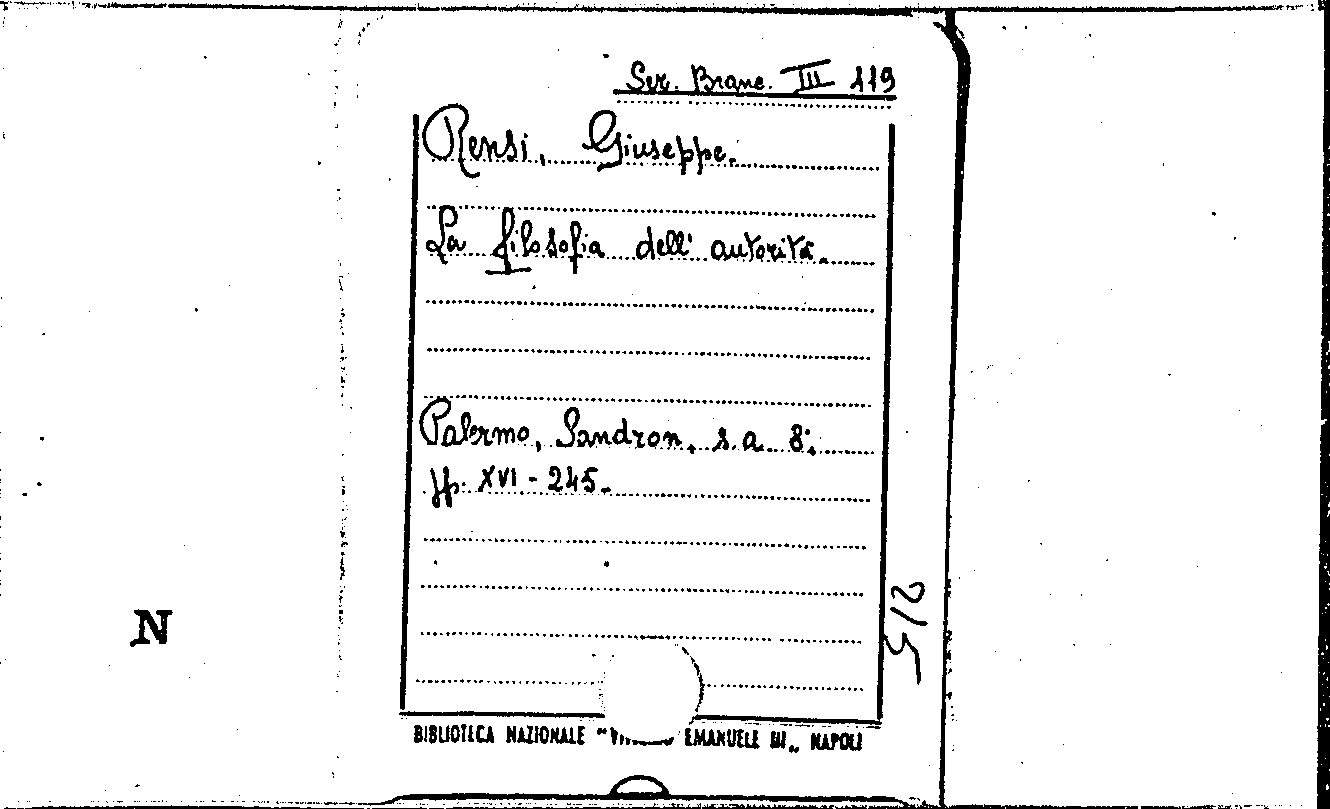 Ser. Branc. III 119
Rensi, Giuseppe.
La filosofia dell'autorità.
Palermo, Sandron, s.a. 8°.
pp. XVI - 245.
N
BIBLIOTECA NAZIONALE " EMANUELE III„ NAPOLI